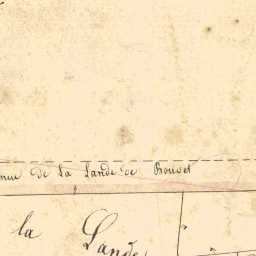 nue de la Lande de Rouvet
la
Lande